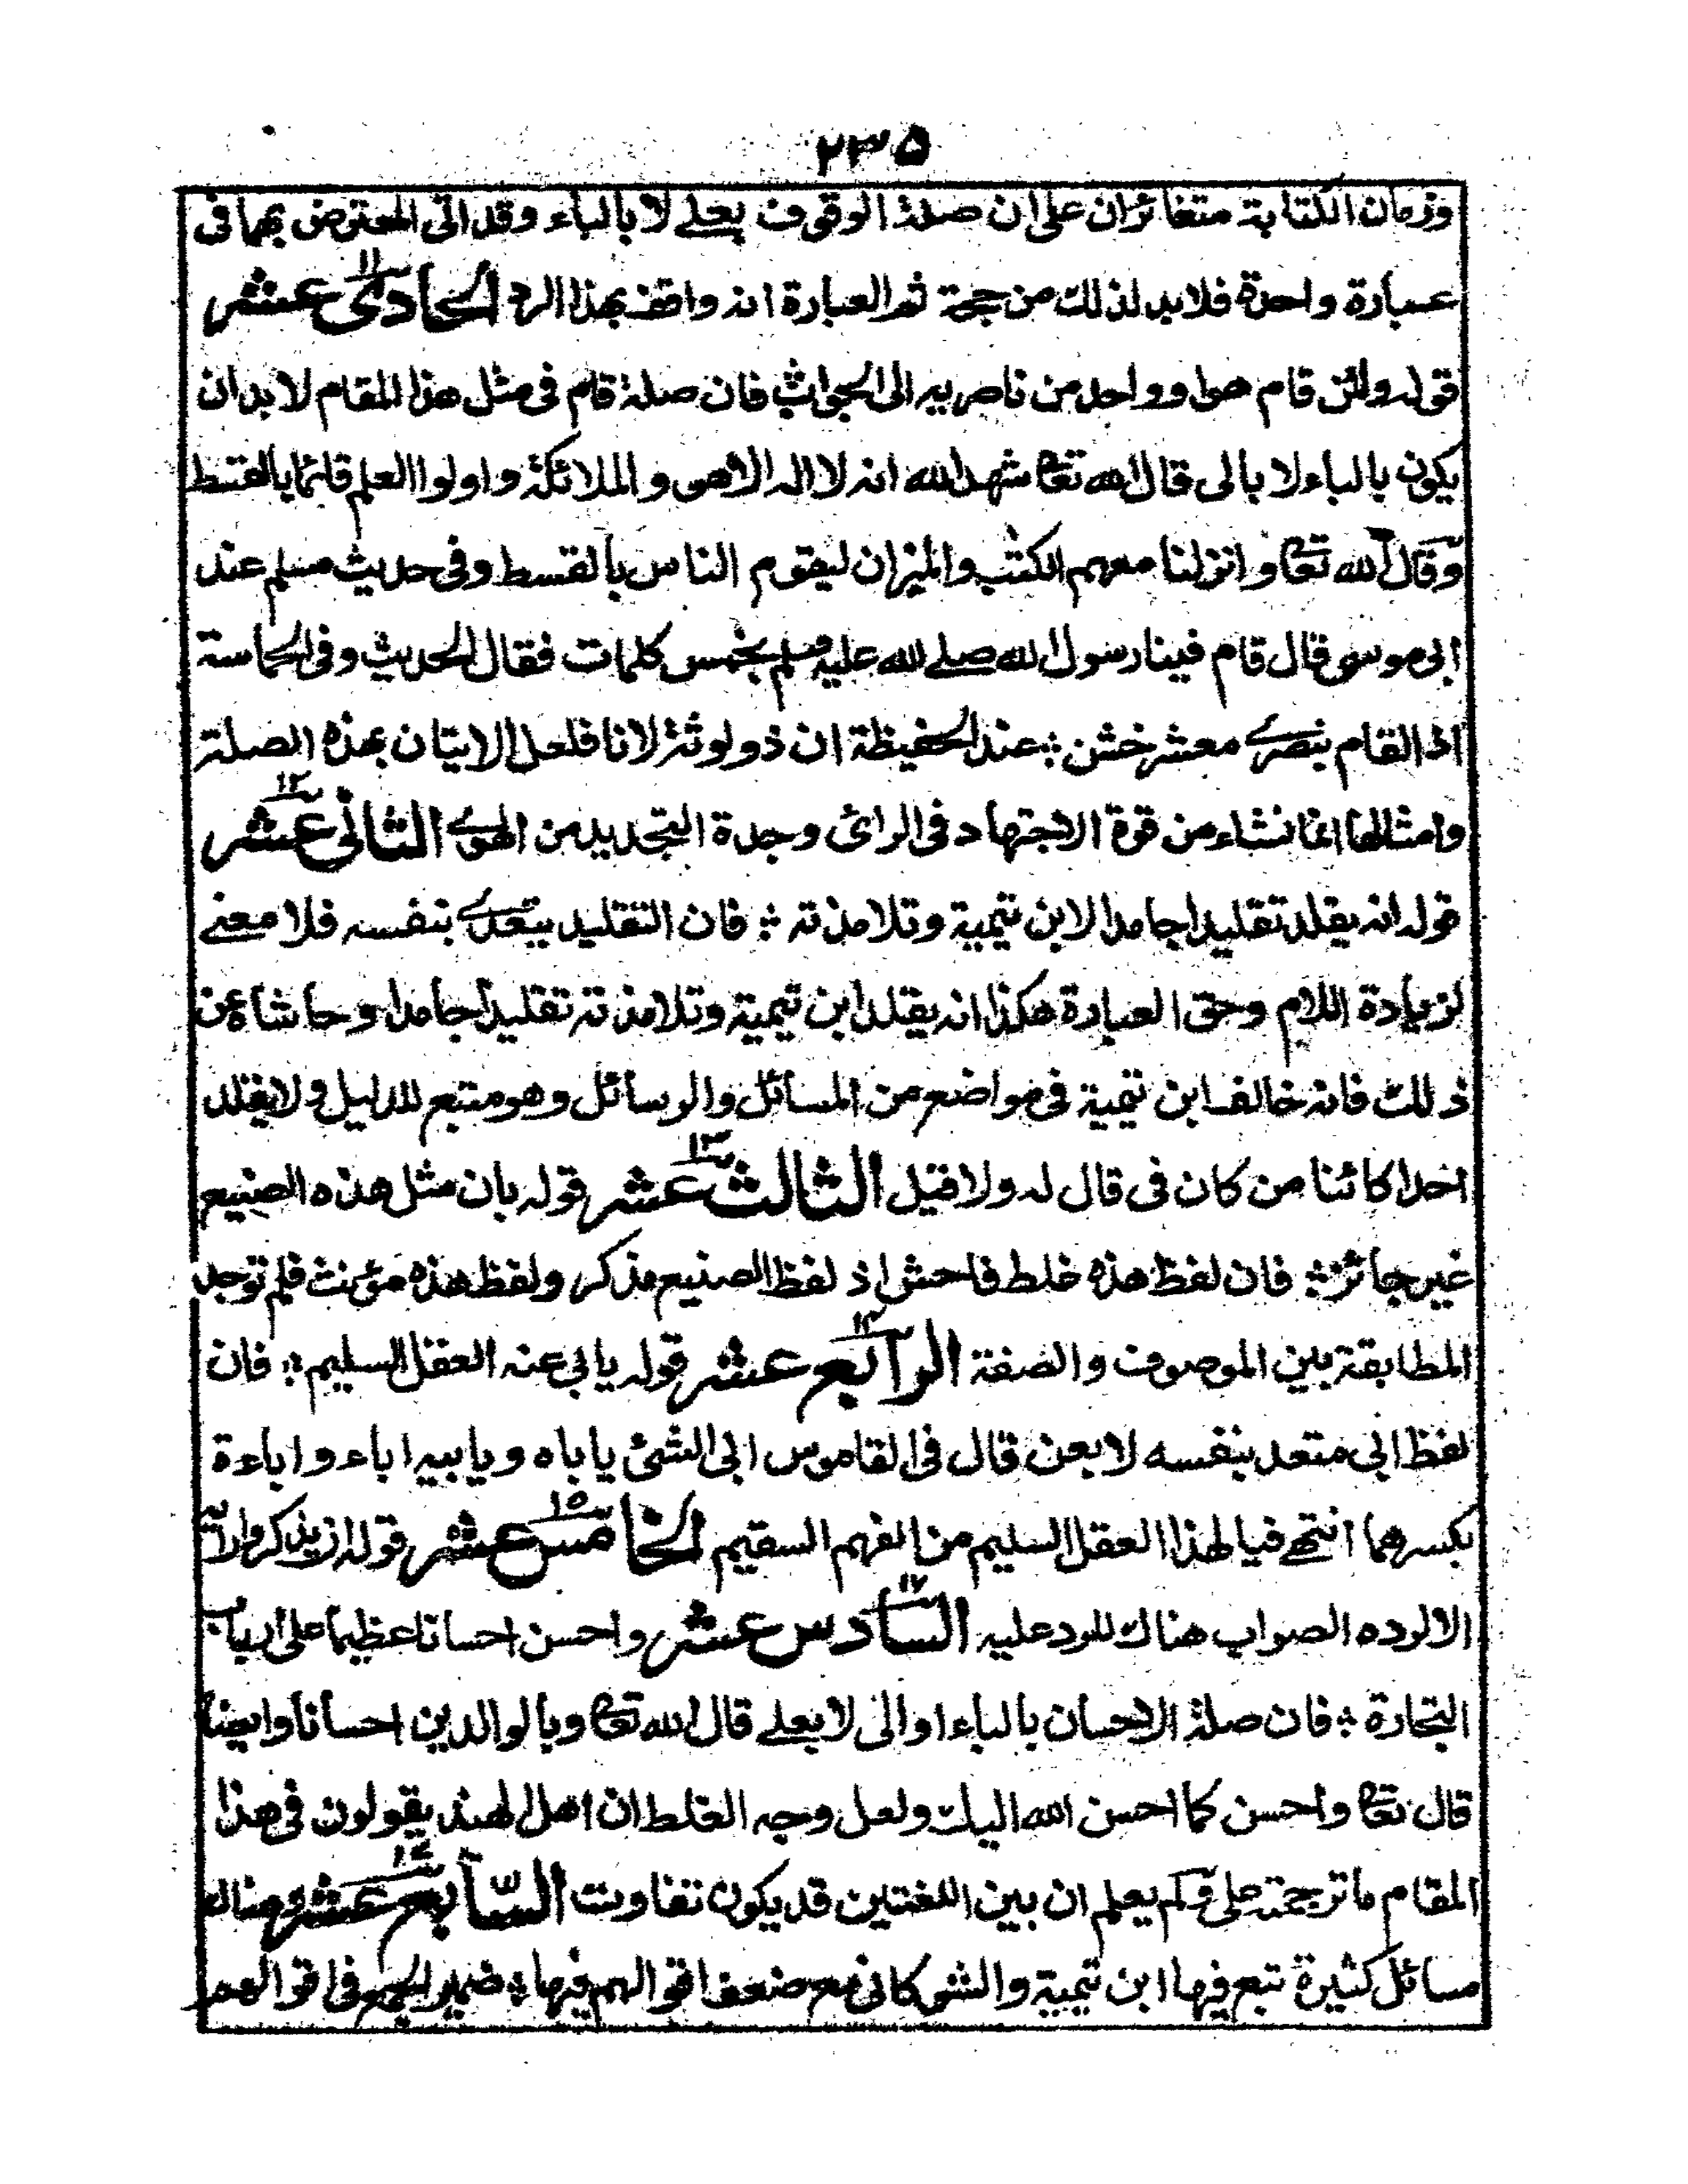 ۲۳۵
وزمان الكتابة متغائران على ان صلة الوقوف بعلے لا بالباء وقد اتى المعترض بهما فى
عبارة واحدة فلابد لذلك من حجة ثم العبارة انه واقف بهذا الرد الحادى عشر ۱۱
قوله ولئن قام هو او واحد من ناصريه الى الجواب فان صلة قام فى مثل هذا المقام لابد ان
يكون بالباء لا بالى قال الله تعا شهد الله انه لا اله الا هو والملائكة واولوا العلم قائما بالقسط
وقال الله تعا وانزلنا معهم الكتب والميزان ليقوم الناس بالقسط وفى حديث مسلم عند
ابى موسى قال قام فينا رسول الله صلے الله عليه وسلم بخمس كلمات فقال الحديث وفى الحماسة
اذا لقام بنصرے معشر خشن ؛ عند الحفيظة ان ذو لوثة لانا فلعل الاتيان بهذه الصلة
وامثالها انما نشاء من قوة الاجتهاد فى الرائ وجدة التجديد من الهوے الثانى عشر ۱۲
قوله انه يقلد تقليدا جامدا لابن تيمية وتلامذته ؛ فان التقليد يتعدے بنفسه فلا معنے
لزيادة اللام وحق العبارة هكذا انه يقلد ابن تيمية وتلامذته تقليدا جامدا وحاشاه عن
ذلك فانه خالف ابن تيمية فى مواضع من المسائل والرسائل وهو متبع للدليل ولا يقلد
احدا كائنا من كان فى قال له ولا قيل الثالث عشر ۱۳ قوله بان مثل هذه الصنيع
غير جائز ؛ فان لفظ هذه غلط فاحش اذ لفظ الصنيع مذكر ولفظ هذه مؤنث فلم توجد
المطابقة بين الموصوف والصفة الرابع عشر ۱۴ قوله يابى عنه العقل السليم ؛ فان
لفظ ابى متعد بنفسه لا بعن قال فى القاموس ابى الشئ ياباه ويابيه اباء واباءة
بكسرهما انتهے فيا لهذا العقل السليم من الفهم السقيم الخامس عشر ۱۵ قوله ان يذكر
الا لرده الصواب هناك للرد عليه السادس عشر ۱۶ واحسن احسانا عظيما على ارباب
التجارة ؛ فان صلة الاحسان بالباء او الى لا بعلے قال الله تعا وبالوالدين احسانا وايضا
قال تعا واحسن كما احسن الله اليك ولعل وجه الغلط ان اهل الهند يقولون فى هذا
المقام ما ترجمته على ولم يعلم ان بين اللغتين قد يكون تفاوت السابع عشر ۱۷ وهناك
مسائل كثيرة تبع فيها ابن تيمية والشوكانى مع ضعف اقوالهم فيها ؛ ضمير الجمع فى اقوالهم